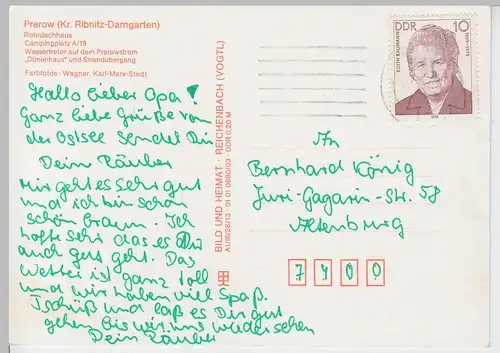 Prerow (Kr. Ribnitz-Damgarten)
Rohrdachhaus
Campingplatz A/19
Wassertreter auf dem Prerowstrom
„Dünenhaus" und Strandübergang
Farbfotos: Wagner, Karl-Marx-Stadt
Hallo lieber Opa!
Ganz liebe Grüße von
der Ostsee sendet Dir
Dein Räuber
Mir geht es sehr gut
und ich bin schön
schön braun. Ich
hoffe sehr das es Dir
auch gut geht. Das
Wetter ist ganz toll
und wir haben viel Spaß.
Tschüß und laß es Dir gut
gehen bis wir uns wiedersehen
Dein Räuber
BILD UND HEIMAT · REICHENBACH (VOGTL)
A1/III/26/13 · 01 01 0680/03 · DDR 0,20 M
DDR 10
EDITH BAUMANN
1909-1973
An
Bernhard König
Juri-Gagarin-Str. 58
Altenburg
7400